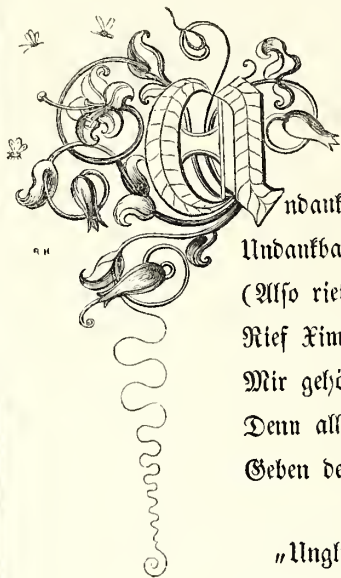 Undank
Undankba
(Also rie
Rief Xim
Mir gehö
Denn all
Geben de
„Ungl